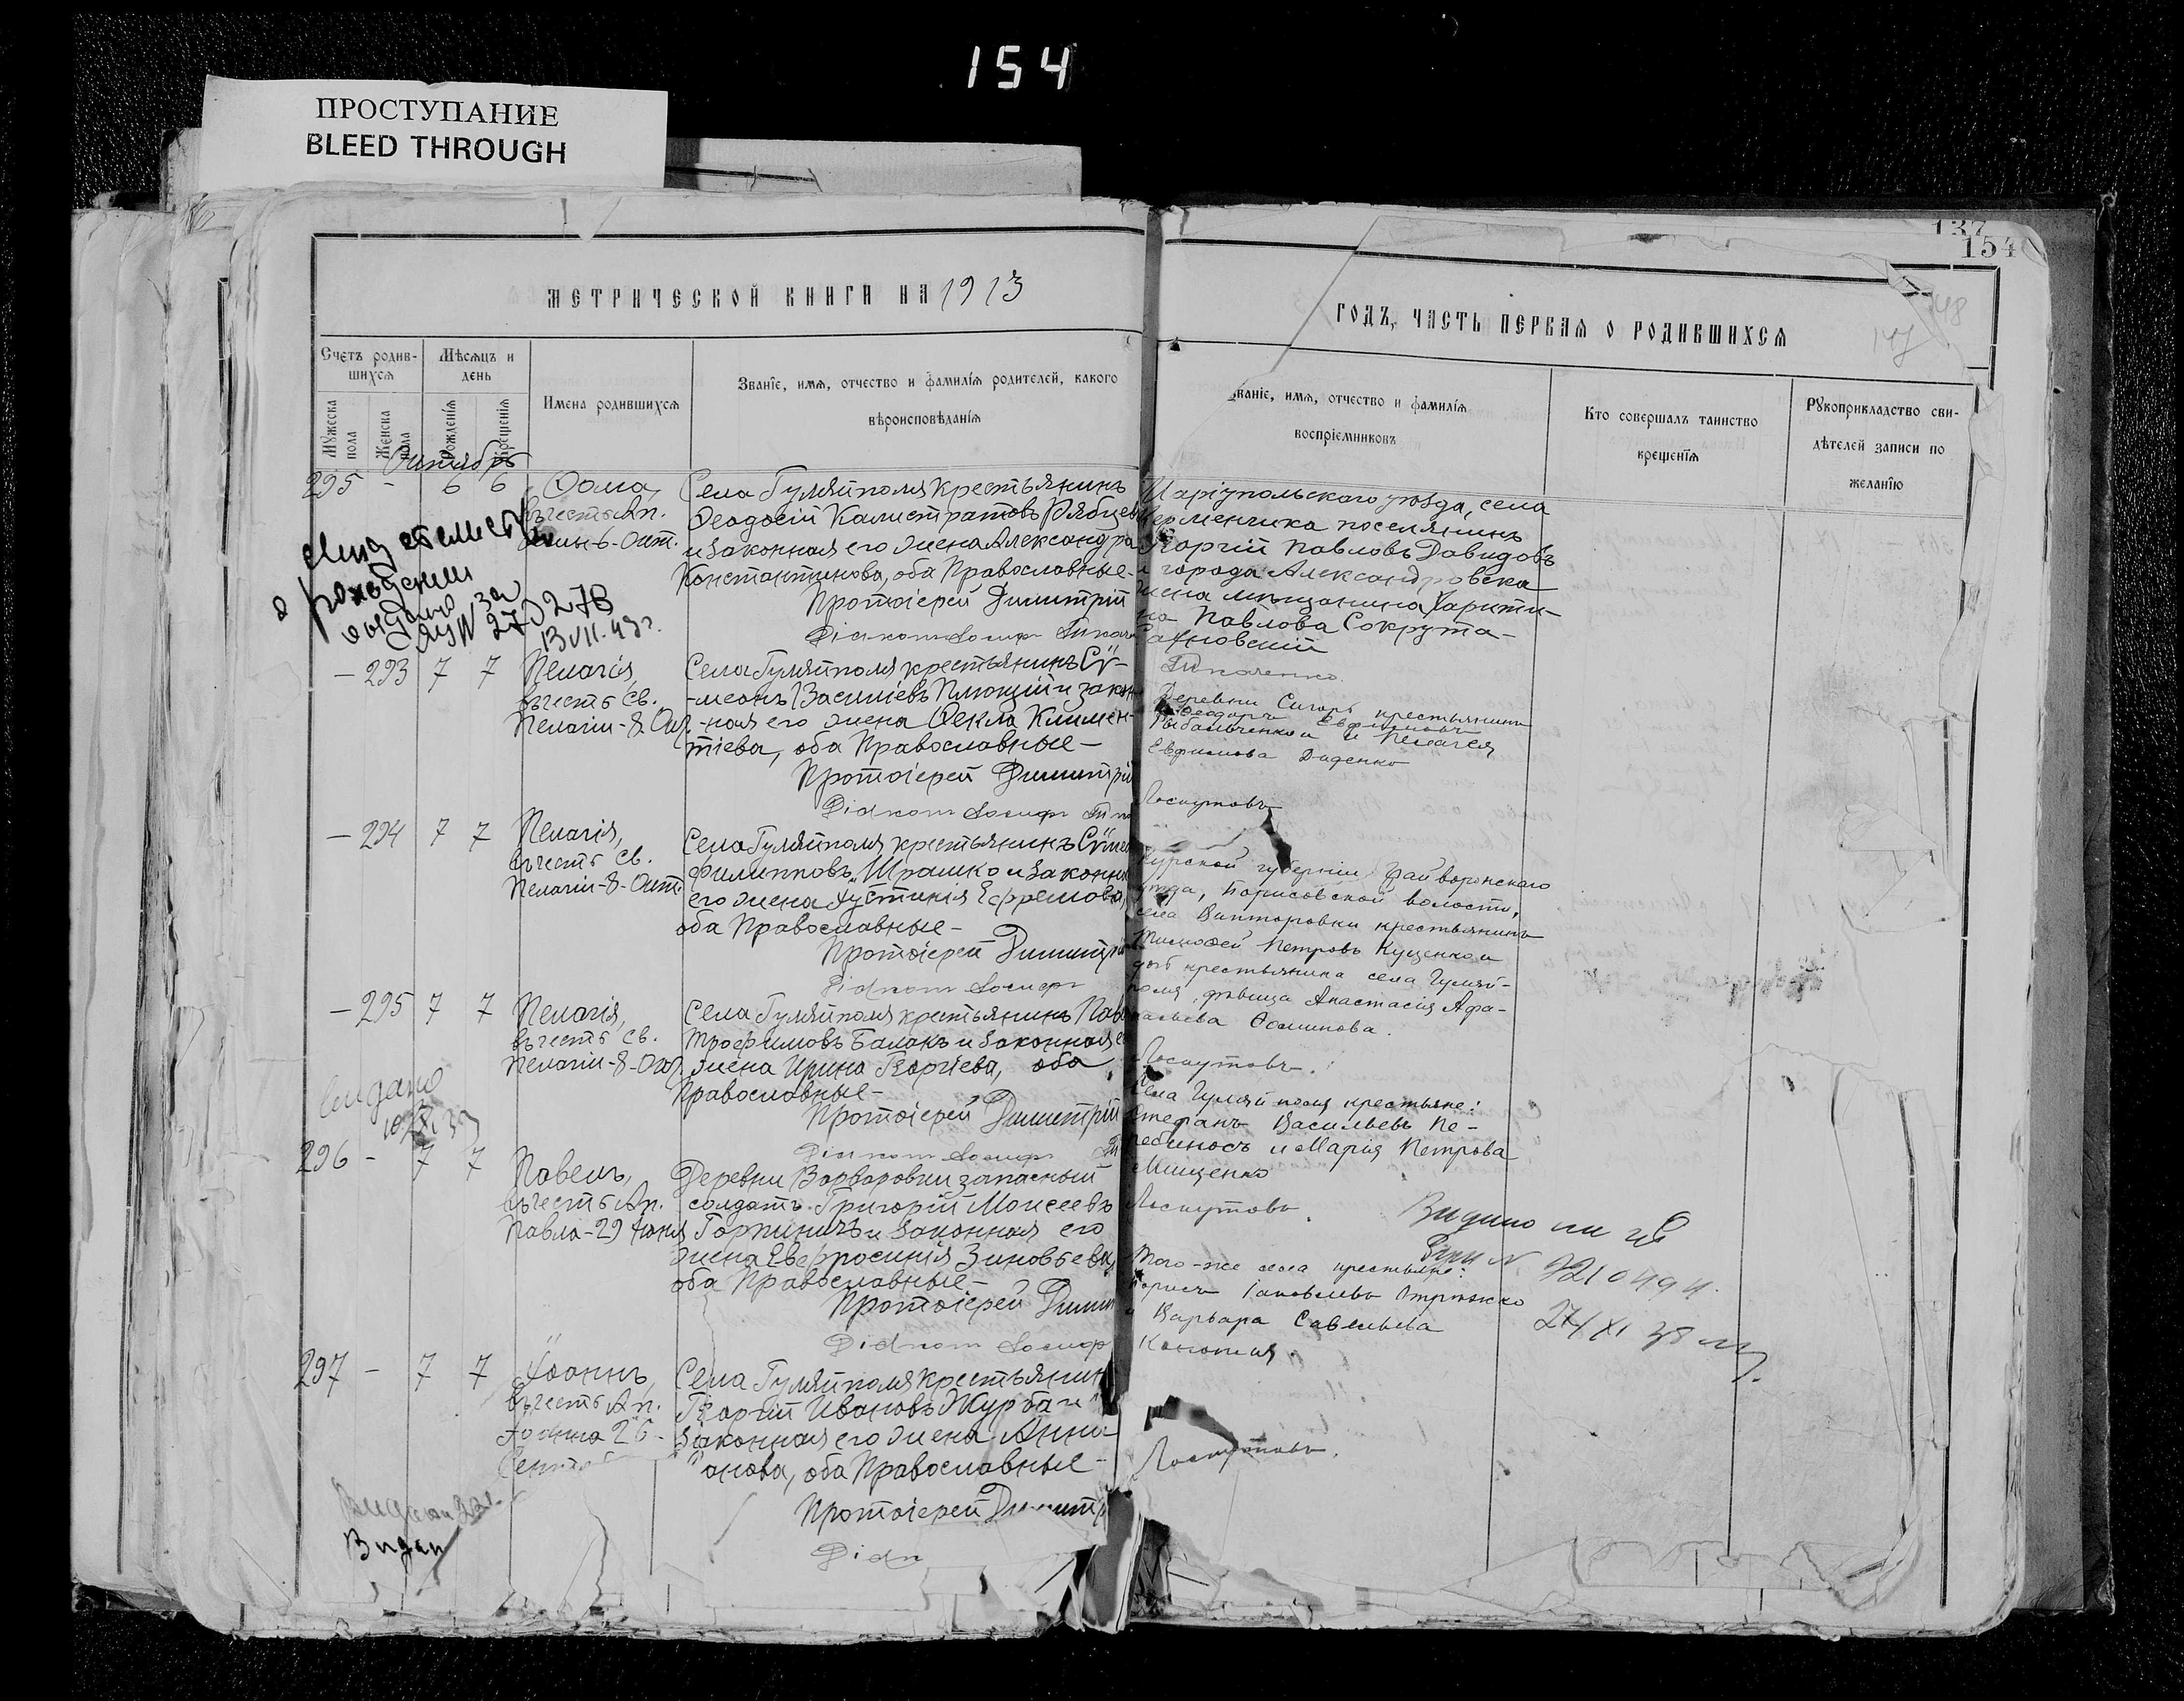 154
ПРОСТУПАНИЕ
BLEED THROUGH
137
154
148
147
МЕТРИЧЕСКОЙ КНИГИ НА 1913
ГОДЪ, ЧАСТЬ ПЕРВАЯ О РОДИВШИХСЯ
Счетъ родив-
шихся
Мѣсяцъ и
день
Мужеска пола
Женска пола
Рожденія
Крещенія
Имена родившихся
Званіе, имя, отчество и фамилія родителей, какого
вѣроисповѣданія
Званіе, имя, отчество и фамилія
воспріемниковъ
Кто совершалъ таинство
крещенія
Рукоприкладство сви-
дѣтелей записи по
желанію
Октябрь
295 - 6 6
Ѳома,
въ честь Ап.
Ѳомы 6-Окт.
Села Гуляйполя крестьянинъ
Ѳеодосій Калистратовъ Рябцев
и законная его жена Александра
Константинова, оба Православные-
Протоіерей Димитрій
Діаконъ Іосифъ
Маріупольскаго уѣзда, села
Керменчика поселянинъ
Георгій Павловъ Давидовъ
и города Александровска
жена мѣщанина Харити-
на Павлова Сокрута-
Сахновскій
Ткаченко
о рождении
выдано за
27 0 273
13 VII. 43 г.
- 293 7 7
Пелагія,
въ честь св.
Пелагіи-8 Окт.
Села Гуляйполя крестьянинъ Сѵ-
-меонъ Васильевъ Плющій и закон-
-ная его жена Ѳекла Климен-
тіева, оба Православные-
Протоіерей Димитрій
Діаконъ Іосифъ
крестьянинъ
Ѳеодоръ Евфимовъ
Рыбальченко и Пелагея
Евфимова Диденко
Лоскутовъ
- 294 7 7
Пелагія,
въ честь св.
Пелагіи-8-Окт.
Села Гуляйполя крестьянинъ Сѵме
Филипповъ Шрамко и законная
его жена Іустинія Ефремова,
оба Православные-
Протоіерей Димитрій
Діаконъ Іосифъ
Курской губерніи, Грайворонскаго
уѣзда, Борисовской волости,
села Викторовки крестьянинъ
Тимофей Петровъ Куценко и
дочь крестьянина села Гуляй-
поля, дѣвица Анастасія Афа-
насьева Ѳоминова.
Лоскутовъ.
- 295 7 7
Пелагія,
въ честь св.
Пелагіи-8-Окт.
Села Гуляйполя крестьянинъ Пав
Трофимовъ Балакъ и законная е
жена Ирина Георгіева, оба
Православные-
Протоіерей Димитрій
Діаконъ Іосифъ
Села Гуляйполя крестьяне:
Стефанъ Васильевъ Пе-
ребиносъ и Марія Петрова
Мищенко
Лоскутовъ
Выдано
296 - 7 7
Павелъ,
въ честь Ап.
Павла-29 Іюня
Деревни Варваровки запасный
солдатъ Григорій Моисеевъ
Горпиничъ и законная его
жена Евфросинія Зиновьева,
оба Православные-
Протоіерей Димит
Діаконъ Іосифъ
Того-же села крестьяне:
Борисъ Іаковлевъ
и Варвара Савельева
Конопля.
Лоскутовъ.
297 - 7 7
Іоаннъ,
въ честь Ап.
Іоанна 26-
Сентяб
Села Гуляйполя крестьянин
Георгій Ивановъ Журба и
законная его жена Анна
анова, оба Православные-
Протоіерей Димитр
Діак
Выдан